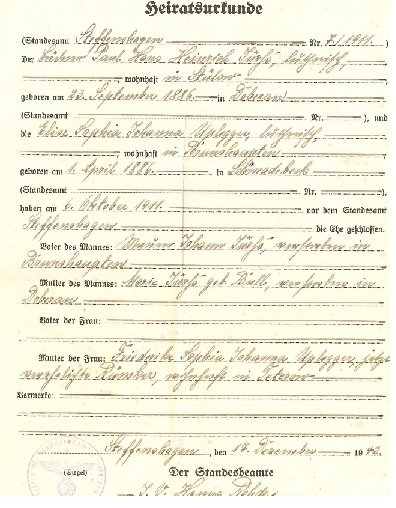 Heiratsurkunde
(Standesamt Steffenshagen Nr. 7/1911.)
Der Paul Hans Heinrich lutherisch,
, wohnhaft in
geboren am 23. September 1886 in
(Standesamt Nr. ), und
die Elise Sophia Johanna Uplegger, lutherisch,
, wohnhaft in Brunshaupten
geboren am 1. April 1886 in
(Standesamt Nr. )
haben am 6. Oktober 1911. vor dem Standesamt
Steffenshagen die Ehe geschlossen.
Vater des Mannes: Johann verstorben in
Brunshaupten
Mutter des Mannes: geb. verstorben in
Vater der Frau:
Mutter der Frau: Friederike Sophia Johanna Uplegger, jetzt
verehelichte wohnhaft in Teterow
Vermerke:
Steffenshagen, den 17. Dezember 1942.
(Siegel) Der Standesbeamte
I. V. Hanna